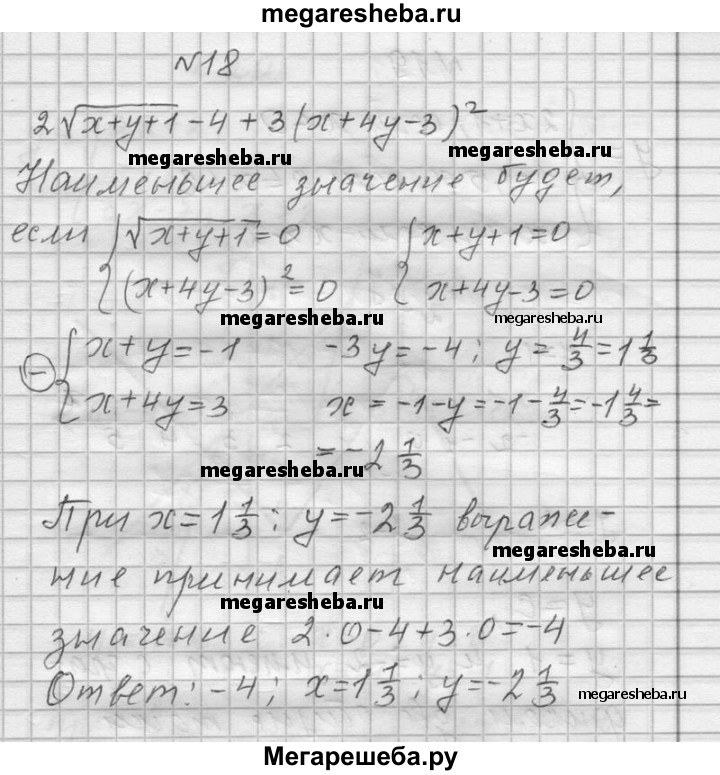 megaresheba.ru
№18
2√(x+y+1) - 4 + 3(x+4y-3)²
megaresheba.ru megaresheba.ru
Наименьшее значение будет,
если { √(x+y+1) = 0 { x+y+1=0
(x+4y-3)² = 0 x+4y-3=0
megaresheba.ru megaresheba.ru
⊖ { x+y=-1 -3y=-4; y=4/3=1 1/3
x+4y=3 x=-1-y=-1-4/3=-1 4/3=
=-2 1/3
megaresheba.ru
При x=1 1/3; y=-2 1/3 выраже-
megaresheba.ru
ние принимает наименьшее
megaresheba.ru
значение 2·0-4+3·0=-4
Ответ: -4; x=1 1/3; y=-2 1/3
megaresheba.ru
Мегарешеба.ру